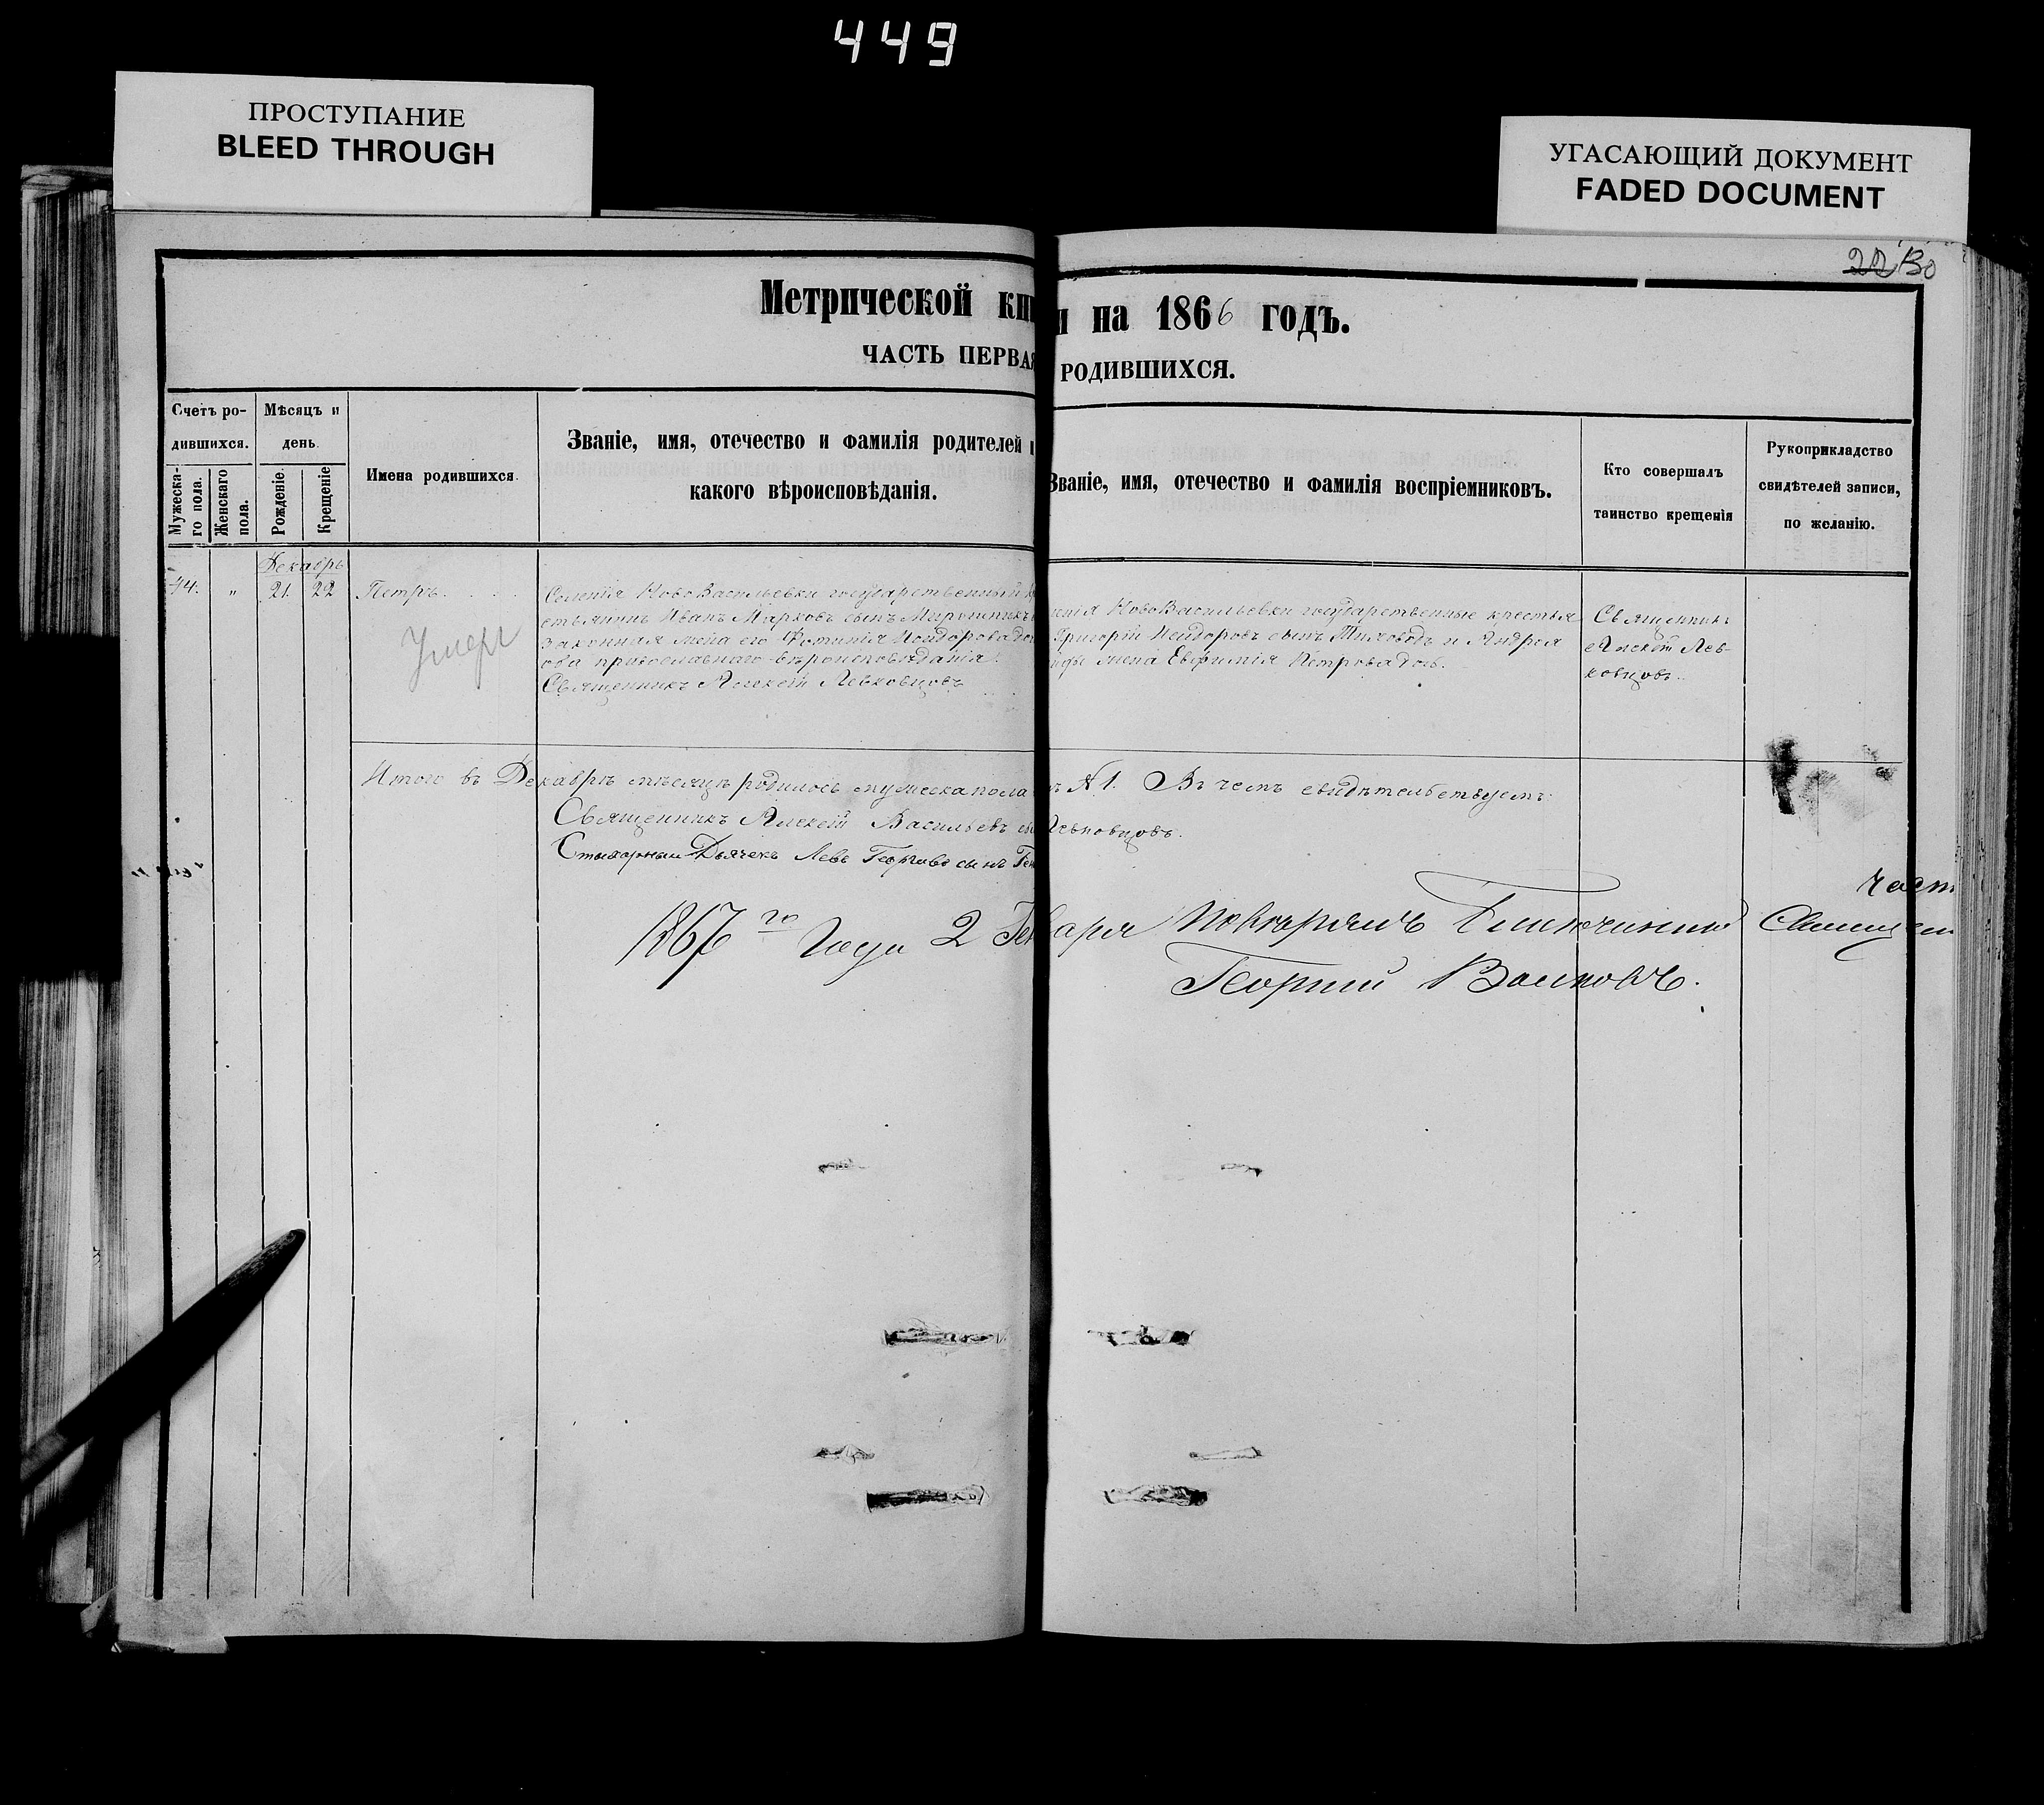 449
ПРОСТУПАНИЕ
BLEED THROUGH
УГАСАЮЩИЙ ДОКУМЕНТ
FADED DOCUMENT
22
Метрической кни
и на 1866 годъ.
ЧАСТЬ ПЕРВАЯ
РОДИВШИХСЯ.
Счетъ ро-
дившихся.
Мужеска-
го пола.
Женскаго
пола.
Мѣсяцъ и
день.
Рожденіе.
Крещеніе
Имена родившихся.
Званіе, имя, отечество и фамилія родителей и
какого вѣроисповѣданія.
Званіе, имя, отечество и фамилія воспріемниковъ.
Кто совершалъ
таинство крещенія
Рукоприкладство
свидѣтелей записи,
по желанію.
Декабрь
44. „ 21. 22 Петръ
Умеръ
Селенія НовоВасильевки государственный
стьянинъ Иванъ Марковъ сынъ
законная жена его Фотинія Исидорова
ова православнаго вѣроисповѣданія.
Священникъ Алексій Левковцовъ
енія НовоВасильевки государственные крестья
Григорій Исидоровъ сынъ и Андрея
жена Евфимія Петрова дочь.
Священникъ
Алексій Лев-
ковцовъ.
Итого въ Декабрѣ мѣсяцѣ родилось мужеска пола
№ 1. Въ чемъ свидѣтельствуемъ:
Священникъ Алексій Васильевъ сы
Левковцовъ.
Стихарный Дьячекъ Левъ Георгіевъ сынъ
част
1867го Года 2 Генваря повторялъ Благочинный Священ
Георгій Волковъ.